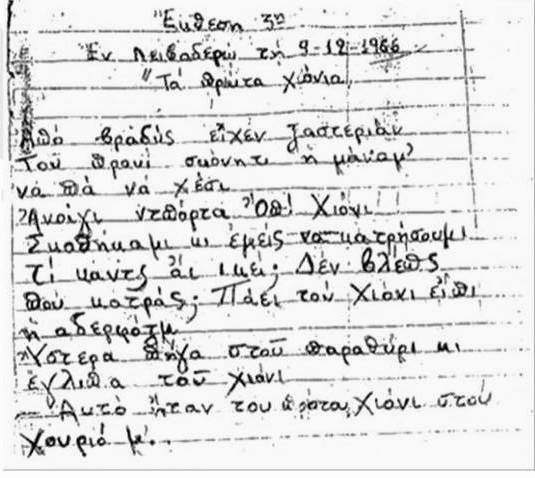 Ἔκθεση 3η
Ἐν Λειβαδερῷ τῇ 9-12-1966
"Τά πρῶτα χιόνια
Ἀπό βραδύς εἶχεν ξαστεριάν
Τοῦ πρανί σκόνητι ἡ μάναμ'
νά πά νά χέσι
Ἀνοίγι ντπόρτα Ὀπ! Χιόνι!
Σκοθήκαμι κι ἐμείς να κατρήσουμι
Τί καντς ἀι ικεί; Δέν βλέπς
που κατράς; Πάει τοῦ χιόνι εἶπι
ἡ αδερφότμ
Ὕστερα πῆγα στοῦ παραθύρι κι
ἔγλιπα τοῦ χιόνι
— Αυτό ἦταν του πρώτα χιόνι στοῦ
χουριό μ'.